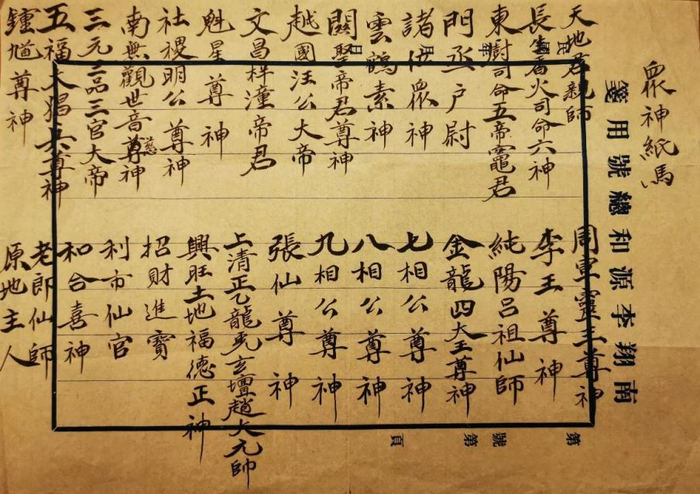 眾神紙馬
南翔李源和總號用箋
天地君親師
長生香火司命六神
東樹司命五帝竈君
門丞户尉
諸位眾神
雲鶴素神
關聖帝君尊神
越國汪公大帝
文昌梓潼帝君
魁星尊神
社稷明公尊神
南無觀世音尊神
三元三品三官大帝
五福大猖兵尊神
鍾馗尊神
周宣靈王尊神
李王尊神
純陽呂祖仙師
金龍四大王尊神
七相公尊神
八相公尊神
九相公尊神
張仙尊神
上清正乙龍虎玄壇趙大元帥
興旺土地福德正神
招財進寶
利市仙官
和合喜神
老郎仙師
原地主人
第 號 第 頁